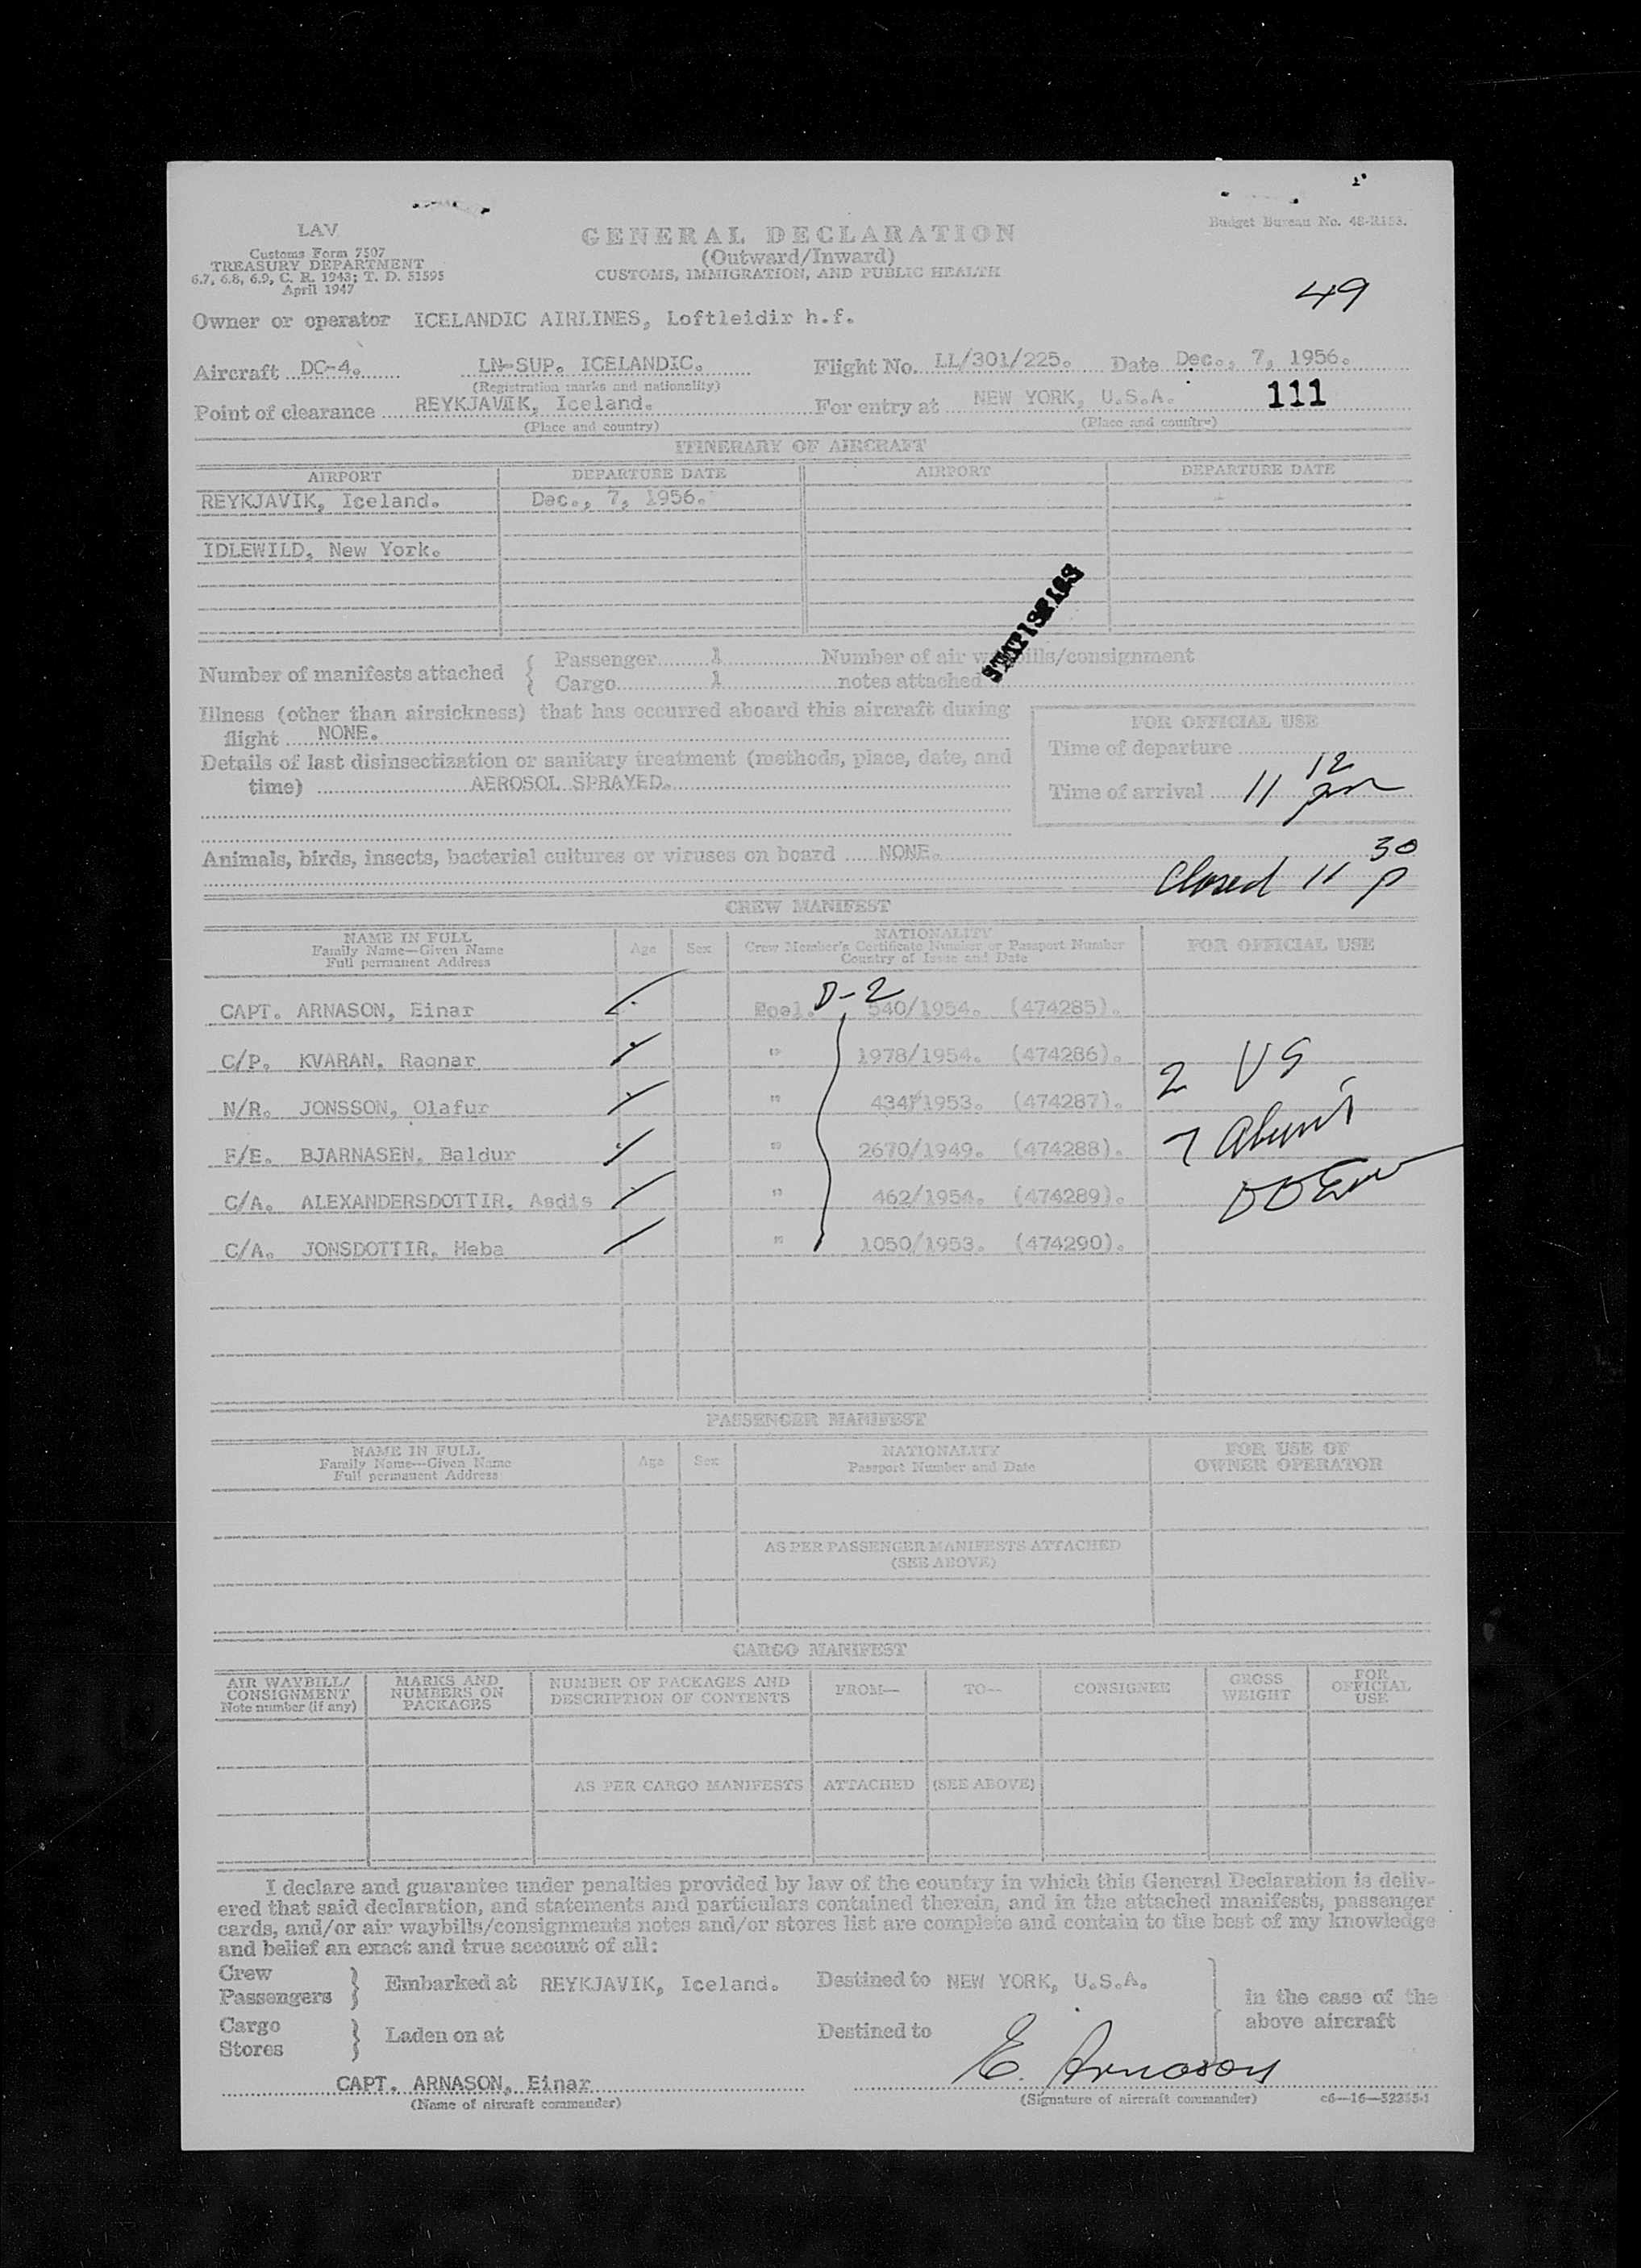 LAV
Customs Form 7507
TREASURY DEPARTMENT
6.7, 6.8, 6.9, C. R. 1943; T. D. 51595
April 1947
GENERAL DECLARATION
(Outward/Inward)
CUSTOMS, IMMIGRATION, AND PUBLIC HEALTH
Budget Bureau No. 48-R153.
49
Owner or operator ICELANDIC AIRLINES, Loftleidir h.f.
Aircraft DC-4. LN-SUP. ICELANDIC. Flight No. LL/301/225. Date Dec., 7, 1956.
(Registration marks and nationality)
Point of clearance REYKJAVIK, Iceland. For entry at NEW YORK, U.S.A. 111
(Place and country) (Place and country)
ITINERARY OF AIRCRAFT
AIRPORT DEPARTURE DATE AIRPORT DEPARTURE DATE
REYKJAVIK, Iceland. Dec., 7, 1956.
IDLEWILD, New York.
STATISTICS
Number of manifests attached { Passenger 1 Number of air waybills/consignment
Cargo 1 notes attached
Illness (other than airsickness) that has occurred aboard this aircraft during
flight NONE.
Details of last disinsectization or sanitary treatment (methods, place, date, and
time) AEROSOL SPRAYED.
FOR OFFICIAL USE
Time of departure
Time of arrival 11 12 pm
Animals, birds, insects, bacterial cultures or viruses on board NONE.
Closed 11 30 p
CREW MANIFEST
NAME IN FULL
Family Name—Given Name
Full permanent Address
Age Sex
NATIONALITY
Crew Member's Certificate Number or Passport Number
Country of Issue and Date
FOR OFFICIAL USE
D-2
CAPT. ARNASON, Einar 540/1954. (474285).
C/P. KVARAN, Ragnar " 1978/1954. (474286).
N/R. JONSSON, Olafur " 434/1953. (474287).
F/E. BJARNASEN, Baldur " 2670/1949. (474288).
C/A. ALEXANDERSDOTTIR, Asdis " 462/1954. (474289).
C/A. JONSDOTTIR, Heba " 1050/1953. (474290).
2 US
7
PASSENGER MANIFEST
NAME IN FULL
Family Name—Given Name
Full permanent Address
Age Sex
NATIONALITY
Passport Number and Date
FOR USE OF
OWNER OPERATOR
AS PER PASSENGER MANIFESTS ATTACHED
(SEE ABOVE)
CARGO MANIFEST
AIR WAYBILL/
CONSIGNMENT
Note number (if any)
MARKS AND
NUMBERS ON
PACKAGES
NUMBER OF PACKAGES AND
DESCRIPTION OF CONTENTS
FROM—
TO—
CONSIGNEE
GROSS
WEIGHT
FOR
OFFICIAL
USE
AS PER CARGO MANIFESTS ATTACHED (SEE ABOVE)
I declare and guarantee under penalties provided by law of the country in which this General Declaration is deliv-
ered that said declaration, and statements and particulars contained therein, and in the attached manifests, passenger
cards, and/or air waybills/consignments notes and/or stores list are complete and contain to the best of my knowledge
and belief an exact and true account of all:
Crew
Passengers } Embarked at REYKJAVIK, Iceland. Destined to NEW YORK, U.S.A.
in the case of the
above aircraft
Cargo
Stores } Laden on at Destined to
CAPT. ARNASON, Einar E. Arnason
(Name of aircraft commander) (Signature of aircraft commander) c6—16—52255-1